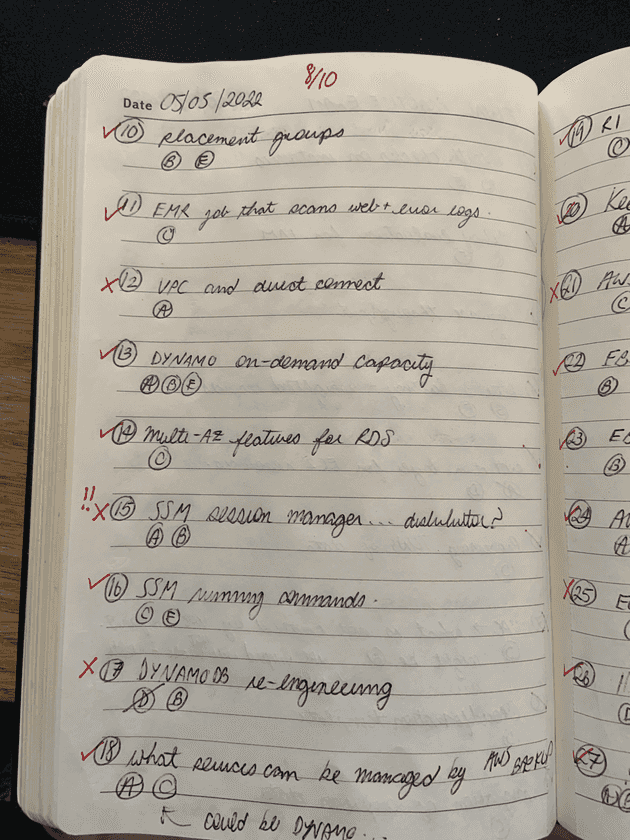 8/10
Date 05/05/2022
✓ 10 placement groups
B E
✓ 11 EMR job that scans web + error logs.
C
x 12 VPC and direct connect
A
✓ 13 DYNAMO on-demand capacity
A B E
✓ 14 Multi-AZ features for RDS
C
!! x 15 SSM session manager... distributor?
A B
✓ 16 SSM running commands.
C E
x 17 DYNAMODB re-engineering
D B
✓ 18 what services can be managed by AWS BACKUP
A C
could be DYNAMO...
✓ 19 RI
C
✓ 20
A
x 21
C
✓ 22
B
✓ 23
B
✓ 24
A
x 25
✓ 26
D
✓ 27
A B